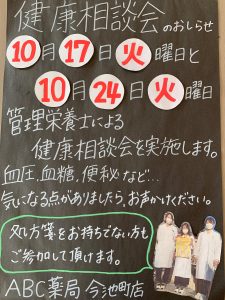 健康相談会のおしらせ
10月17日火曜日と
10月24日火曜日
管理栄養士による
健康相談会を実施します。
血圧、血糖、便秘など…
気になる点がありましたら、お声かけください。
処方箋をお持ちでない方も
ご参加して頂けます。
ABC薬局 今池町店